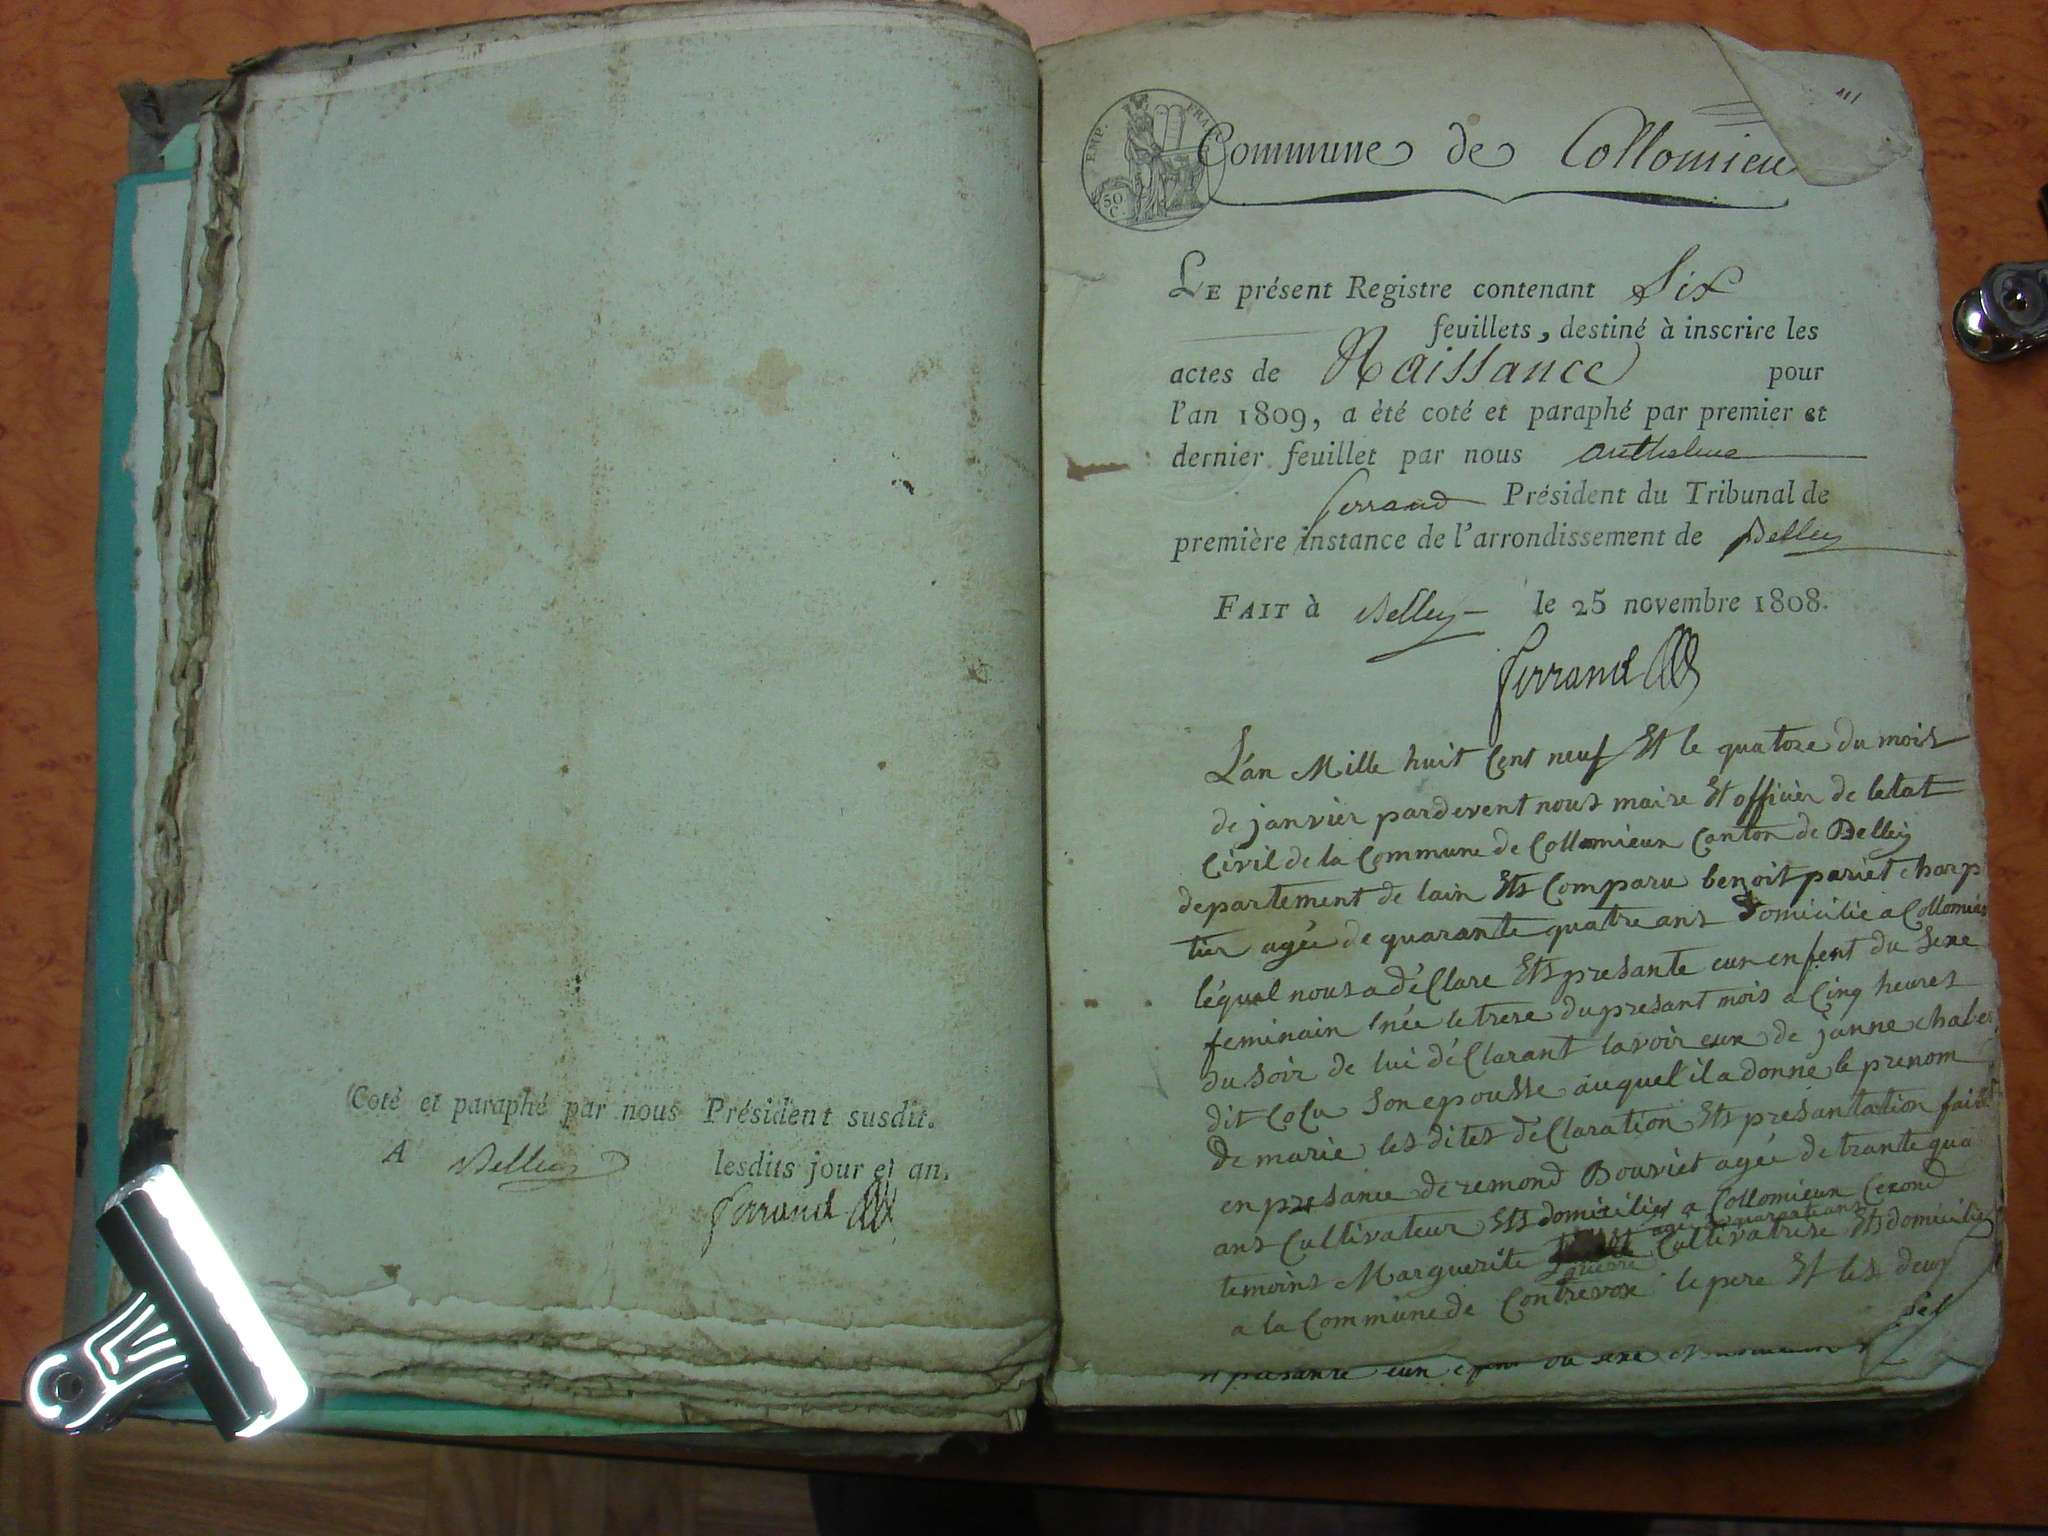 Coté et paraphé par nous Président susdit.
A Belley lesdits jour et an.
Ferrand
111
EMP. FRAN
50 C.
Commune de Collomieu
LE présent Registre contenant Six
feuillets, destiné à inscrire les
actes de Naissance pour
l'an 1809, a été coté et paraphé par premier et
dernier feuillet par nous anthelme
ferrand Président du Tribunal de
première instance de l'arrondissement de Belley
FAIT à Belley le 25 novembre 1808.
ferrand
L'an Mille huit Cent neuf Et le quatoze du mois
de janvier pardevent nous maire Et officier de letat
Civil de la Commune de Collomieux Canton de Belley
departement de lain Ets Comparu benoit pariet charp
tier agée de quarante quatre ans Domicilié a Collomieu
léqual nous a déClare Ets presante eun enfent du sexe
feminain née le treze du presant mois a Cinq heures
du soir de lui déClarant lavoir eux de janne chaber
dit Colu son epousse auquel il a donné le prenom
De marie les dites déClaration Ets presantation faitte
en presance de remond Bouviet agée de trante qua
ans Cultivateur Ets domicilies a Collomieux Cexond
temoins Marguerite age de quarante ans Cultivatrise Ets domicilie
guerre
a la Commune de Contrevox le pere Et les deux
Sel
presante eun du sexe